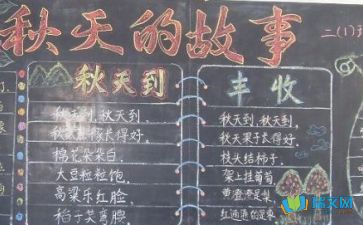 秋天的故事
二(1)
秋天到
秋天到,秋天到,
棉花朵朵白,
大豆粒粒饱,
高粱乐红脸,
稻子笑弯腰
丰收
秋天到,秋天到,
秋天果子长得好,
枝头结柿子,
架上挂葡萄
黄澄澄是梨
红通通的是枣
瑞文网